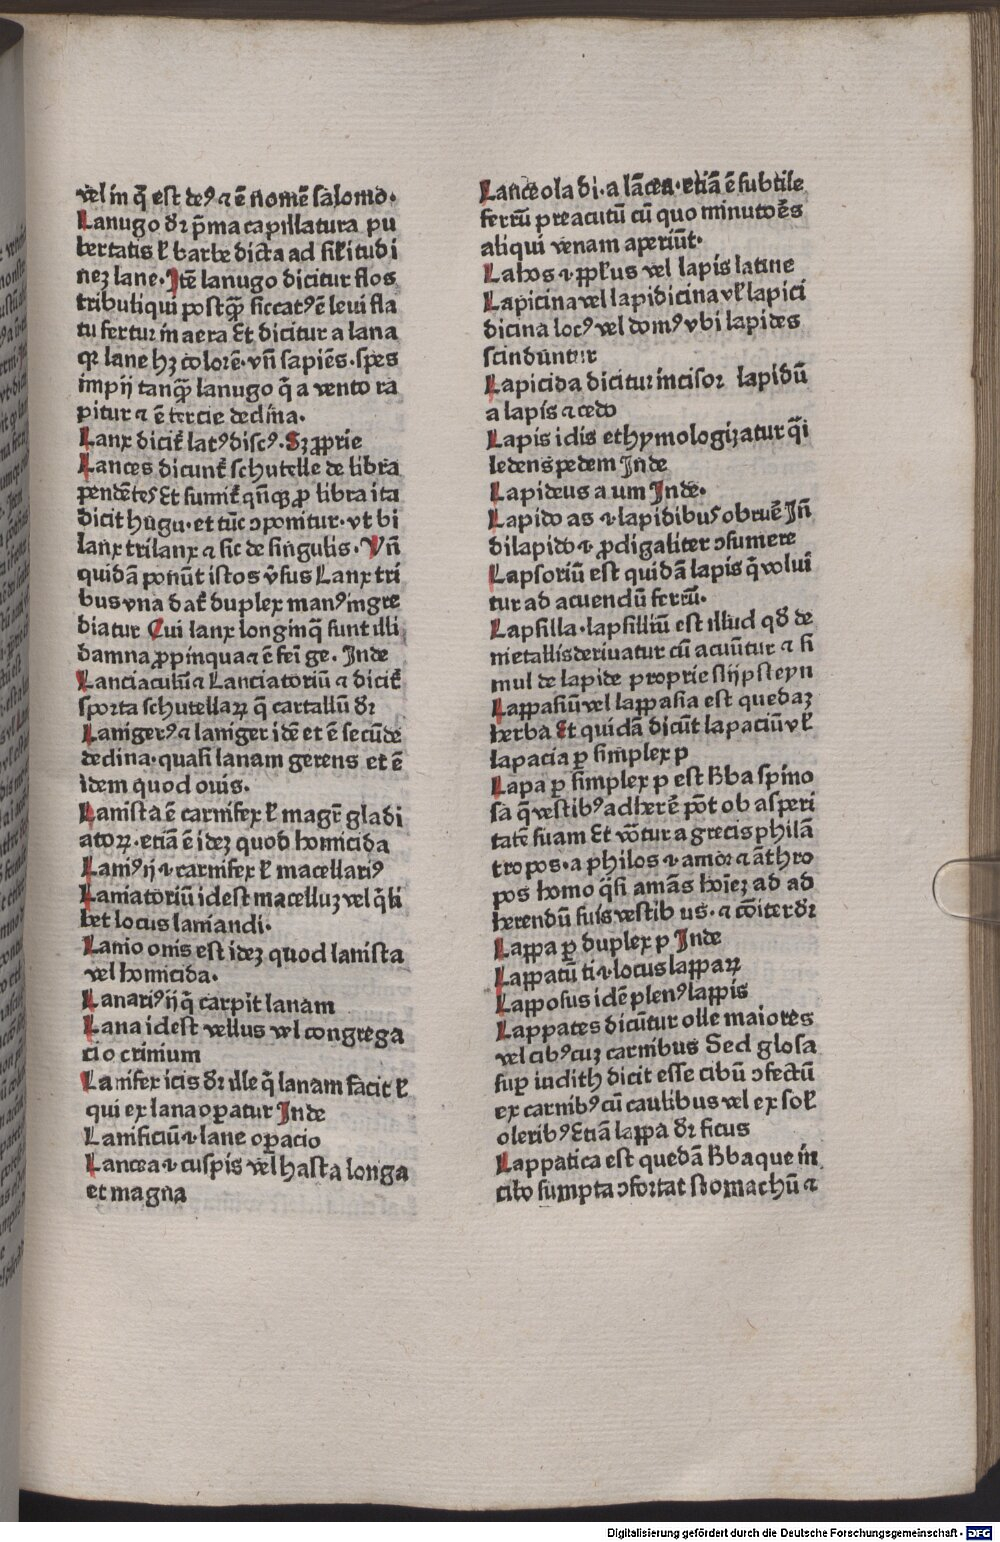 vel in q̄ est deꝰ ⁊ ē nomē salomō.
Lanugo dr̄ p̄ma capillatura pu
bertatis ł barbe dicta ad silʼitudi
neꝫ lane. Itē lanugo dicitur flos
tribuli qui postq̄ȝ siccatꝰ ē leui fla
tu fertur in aera Et dicitur a lana
qꝛ lane hꝫ colorē. vn̄ sapiēs. spes
impij tanq̄ȝ lanugo q̄ a vento ra
pitur ⁊ ē tercie declina.
Lanx dicit̄ latꝰ discꝰ. Sꝫ ꝓprie
Lances dicunt̄ schutelle de libra
pendētes Et sumit̄ qn̄qꝫ ꝓ libra ita
dicit hugu. et tūc ↄponitur. vt bi
lanx trilanx ⁊ sic de singulis. Vn̄
quidā ponūt istos v̓sus Lanx tri
bus vna dat̄ duplex manꝰ ingre
diatur Cui lanx longinq̄ sunt illi
damna ꝓpinqua ⁊ ē femī ge. Inde
Lanciaculū ⁊ Lanciatoriū ⁊ dicit̄
sporta schutellaꝝ q̄ cartallū dr̄
Lanigerꝰ ⁊ laniger idē et ē secūde
declina. quasi lanam gerens et ē
idem quod ouis.
Lanista ē carnifex ł magr̄ gladi
atoꝝ. etiā ē ideꝫ quod homicida
Laniꝰ ij ⁊ carnifex ł macellariꝰ
Laniatoriū idest macelluꝫ vel q̄li
bet locus laniandi.
Lanio onis est ideꝫ quod lanista
vel homicida.
Lanariꝰ ij q̄ carpit lanam
Lana idest vellus vel congrega
cio crinium
Lanifex icis dr̄ ille q̄ lanam facit ł
qui ex lana oꝑatur Inde
Lanificiū ⁊ lane oꝑacio
Lancea ⁊ cuspis vel hasta longa
et magna
Lanceola di. a lācea. etiā ē subtile
ferrū preacutū cū quo minutoēs
aliqui venam aperiūt.
Lahos ⁊ ꝓpłus vel lapis latine
Lapicina vel lapidicina vł lapici
dicina locꝰ vel domꝰ vbi lapides
scinduntur
Lapicida dicitur incisor lapidū
a lapis ⁊ cedo
Lapis idis ethymologizatur q̄i
ledens pedem Inde
Lapideus a um Inde.
Lapido as ⁊ lapidibus obruē In̄
dilapido ⁊ ꝓdigaliter ↄsumere
Lapsoriū est quidā lapis q̄ volui
tur ad acuendū ferrū.
Lapsilla. lapsillūm est illud qd̄ de
metallis deriuatur cū acuūtur ⁊ si
mul de lapide proprie slijpsteyn
Lappasiū vel lappasia est quedaꝫ
herba Et quidā dicūt lapaciū vł
lapacia ꝑ simplex p
Lapa ꝑ simplex p est h̓ba spino
sa q̄ vestibꝰ adherē pōt ob asperi
tatē suam Et vōtur a grecis philā
tropos. a philos ⁊ amor ⁊ āthro
pos homo q̄si amās hoīeꝫ ad ad
herendū suis vestibus. ⁊ cōiter dr̄
Lappa ꝑ duplex p Inde
Lappatū ti ⁊ locus lappaꝝ
Lapposus idē plenꝰ lappis
Lappates dicūtur olle maiores
vel cibꝰ cuꝫ carnibus Sed glosa
suꝑ iudith dicit esse cibū ↄfectū
ex carnibꝰ cū caulibus vel ex soł
oleribꝰ Etiā lappa dr̄ ficus
Lappatica est quedā h̓ba que in
cibo sumpta ↄfortat stomachū ⁊
Digitalisierung gefördert durch die Deutsche Forschungsgemeinschaft - DFG